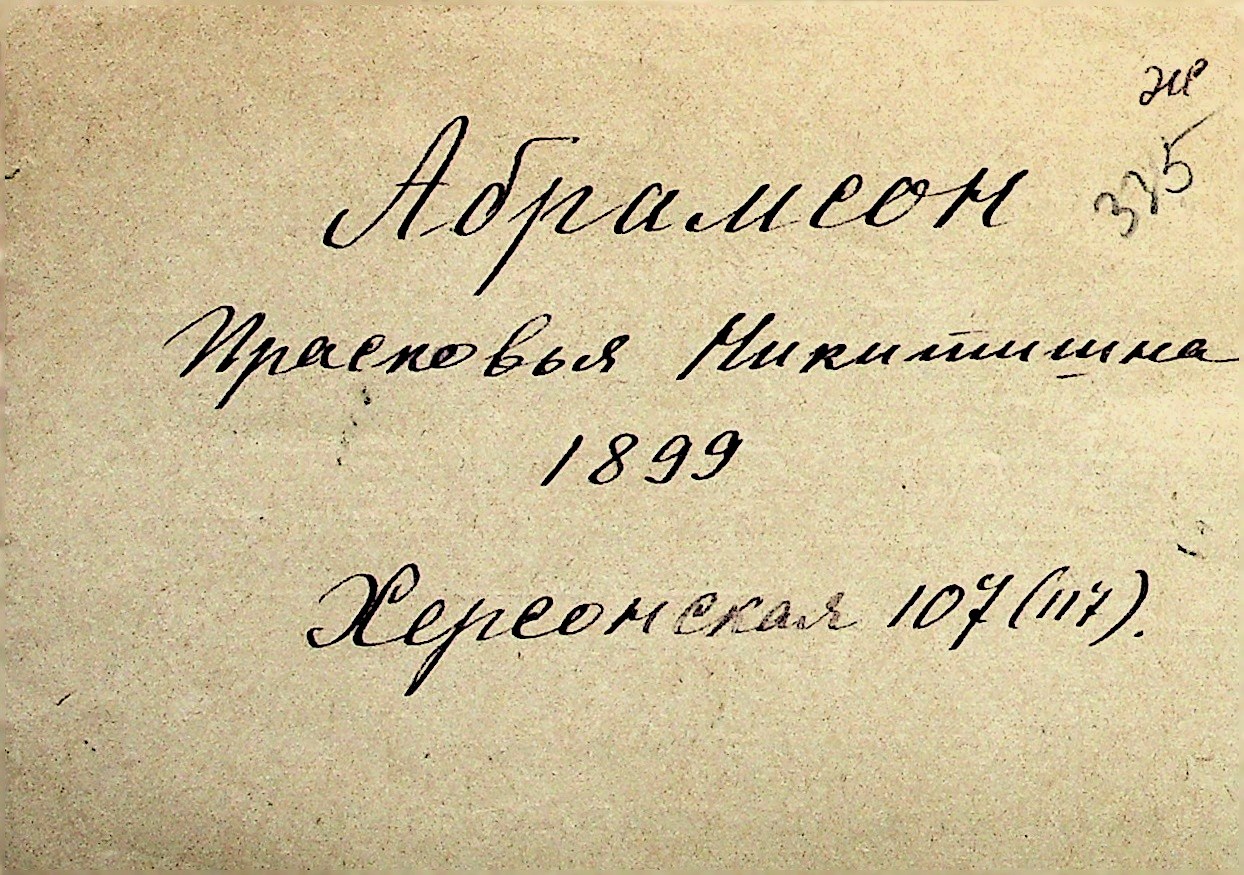 Абрамсон
Прасковья Никитишна
1899
Херсонская 107 (117).